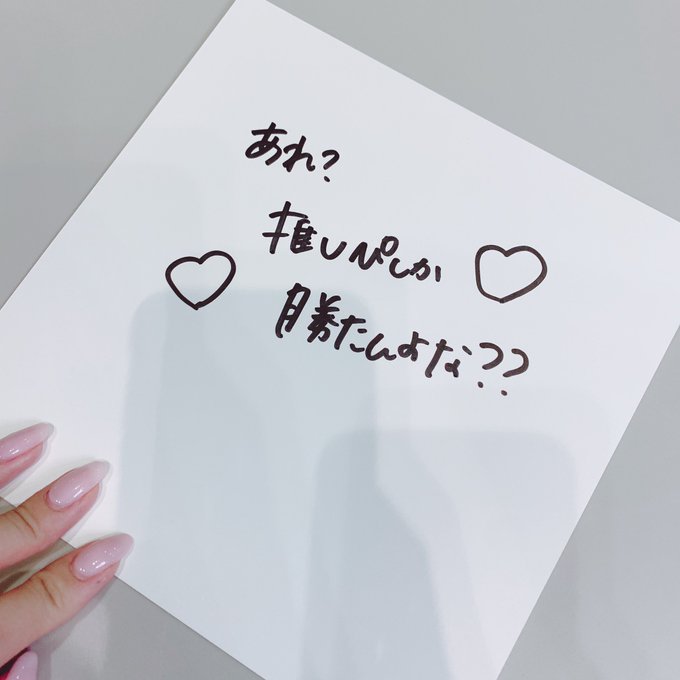 あれ?
推しぴしか
勝たんよな??